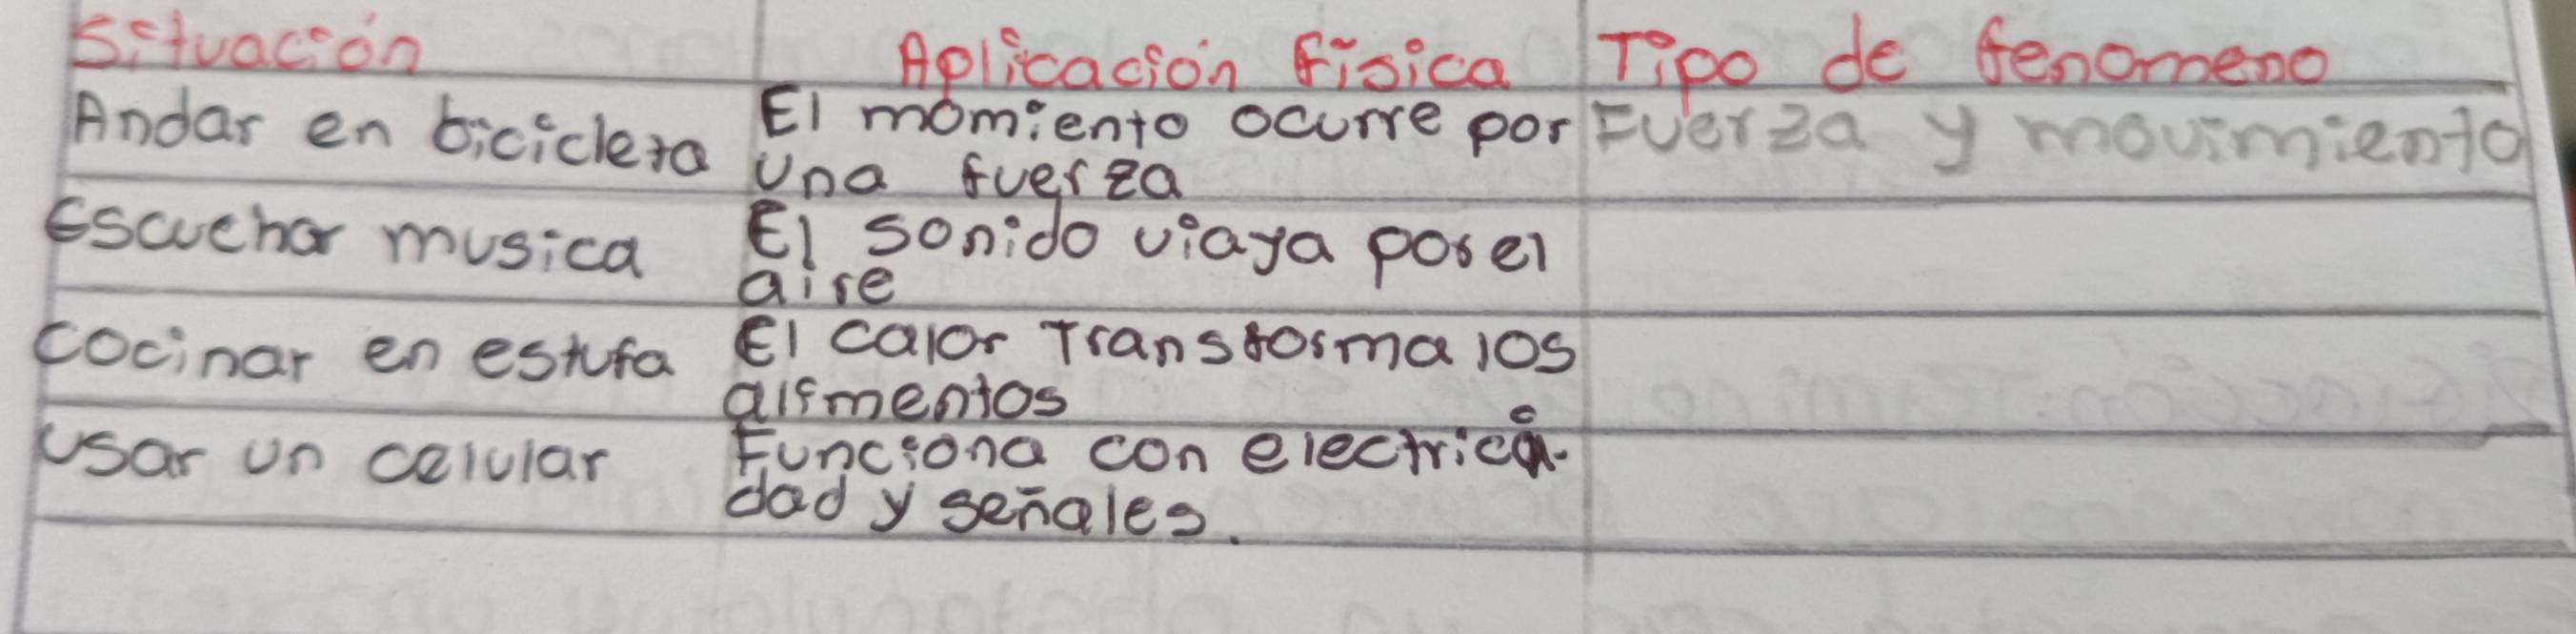 Situación Aplicación física Tipo de fenomeno
Andar en bicicleta El momiento ocurre por Fuerza y movimiento
una fuerza
Escuchar musica El sonido viaya por el
aire
Cocinar en estufa El calor Transforma los
alimentos
Usar un celular Funciona con electrici-
dad y señales.